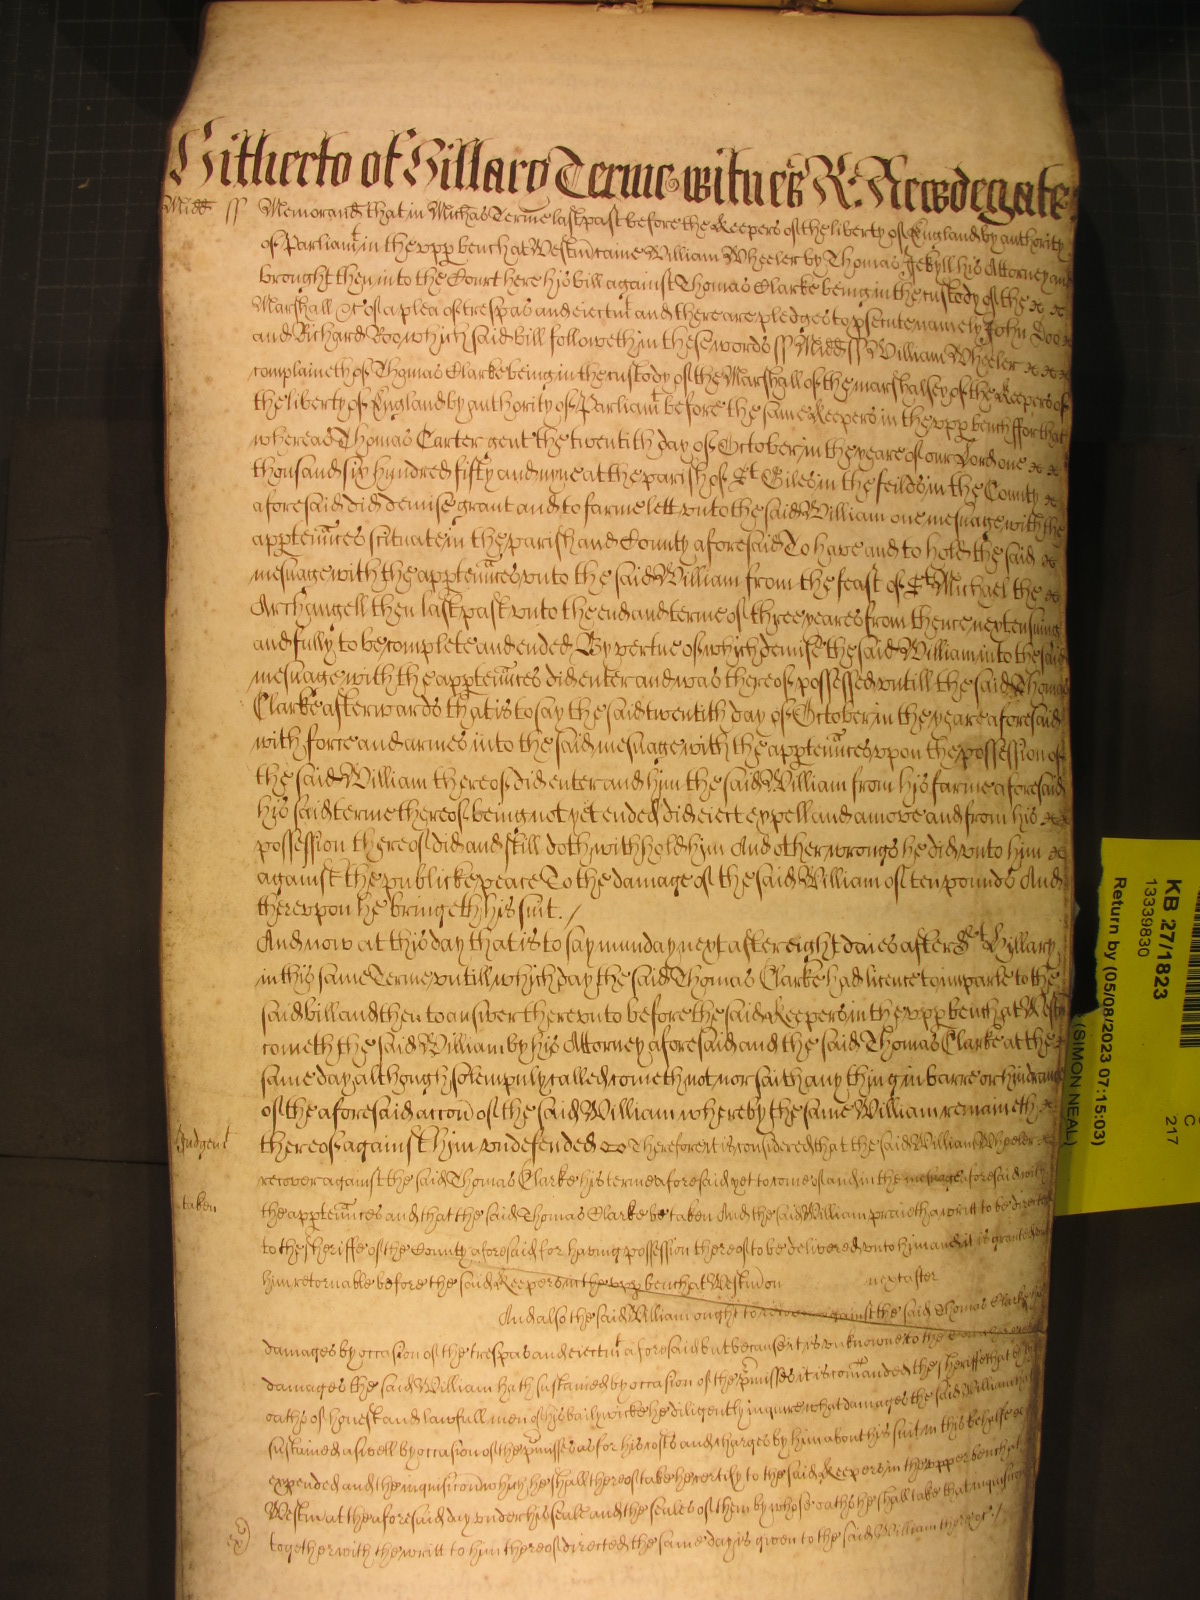 Hitherto of Hillary Terme witnes R: Newdegate
Midd ss Memorand that in Michas Terme last past before the Keepers of the liberty of England by authority
of Parliamt in the upp bench at Westm came William Wheeler by Thomas Jekyll his Attorney and
brought then into the Court here his bill against Thomas Clarke being in the custody of the
Marshall &c of a plea of trespas and eiectmt and there are pledges to psecute namely John Doe
and Richard Roo which said bill followeth in these words ss Midd ss William Wheeler
complaineth of Thomas Clarke being in the custody of the Marshall of the marshalsey of the Keepers of
the liberty of England by authority of Parliamt before the same Keepers in the upp bench ffor that
whereas Thomas Carter gent the twentith day of October in the yeare of our Lord one
thousand six hundred fifty and nyne at the parish of St Giles in the feilds in the County
aforesaid did demise grant and to farme lett unto the said William one mesuage with the
apptennces scituate in the parish and County aforesaid To have and to hold the said
mesuage with the apptennces unto the said William from the feast of St Michael the
Archangell then last past unto the end and terme of three yeares from thence next ensuing
and fully to be complete and ended By vertue of which demise the said William into the said
mesuage with the apptennces did enter and was thereof possessed untill the said Thomas
Clarke afterwards that is to say the said twentith day of October in the yeare aforesaid
with force and armes into the said mesuage with the apptennces upon the possession of
the said William thereof did enter and him the said William from his farme aforesaid
his said terme thereof being not yet ended did eiect expell and amove and from his
possession thereof did and still doth withhold him And other wrongs he did unto him
against the publicke peace To the damage of the said William of ten pounds And
thereupon he bringeth his suit. /
And now at this day that is to say munday next after eight daies after St Hillary
in this same Terme untill which day the said Thomas Clarke had licence to imparle to the
said bill and then to answer thereunto before the said Keepers in the upp bench at Westm
cometh the said William by his Attorney aforesaid and the said Thomas Clarke at the
same day although solempnly called cometh not nor saith any thing in barre or hindrance
of the aforesaid accon of the said William whereby the same William remaineth
Judgent thereof against him undefended &c Therefore it is considered that the said William Wheeler
recover against the said Thomas Clarke his terme aforesaid yet to come of and in the mesuage aforesaid with
taken the apptennces and that the said Thomas Clarke be taken And the said William praieth a writt to be directed
to the sheriffe of the County aforesaid for having possession thereof to be delivered unto him and it is granted unto
him retornable before the said Keepers in the upp bench at Westm on next after
And also the said William ought to recover against the said Thomas Clarke his
damages by occasion of the trespas and eiectmt aforesaid but because it is unknowne to the
damages the said William hath sustained by occasion of the pmisses it is comanded the sheriffe that
oaths of honest and lawfull men of his bailywicke he diligently inquire what damages the said William hath
sustained aswell by occasion of the pmisses as for his costs and charges by him about his suit in this behalfe
expended and the inquisicon which he shall thereof take he certify to the said Keepers in the upper bench at
Westm at the aforesaid day under his seale and the seales of them by whose oaths he shall take that inquisicon
together with the writt to him thereof directed the same day is given to the said William thereof. /
KB 27/1823
13339830
Return by (05/08/2023 07:15:03)
(SIMON NEAL)
C
217